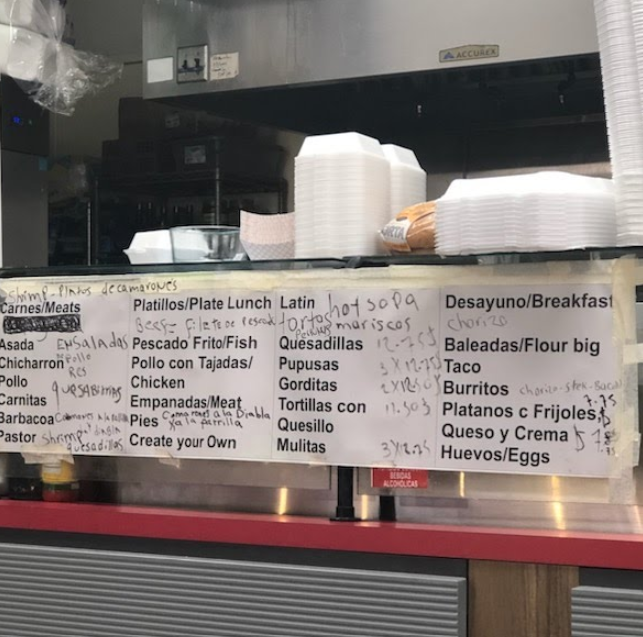 ACCUREX
Shrimp - Platos de camarones
Carnes/Meats
Asada Ensaladas
Chicharron Pollo
Res
Pollo
Carnitas quesabirrias
Barbacoa
Pastor Shrimp
quesadillas
Platillos/Plate Lunch
Beef - Filete de pescado
Pescado Frito/Fish
Pollo con Tajadas/
Chicken
Empanadas/Meat
Pies Camarones a la Diabla
y a la parrilla
Create your Own
Latin hot sopa
tortas mariscos
Quesadillas 12.75$
Pupusas 3X12.75
Gorditas
Tortillas con
Quesillo
Mulitas 3X12.75
Desayuno/Breakfast
chorizo
Baleadas/Flour big
Taco
Burritos
7.75
Platanos c Frijoles
Queso y Crema
Huevos/Eggs
BEBIDAS
ALCOHOLICAS